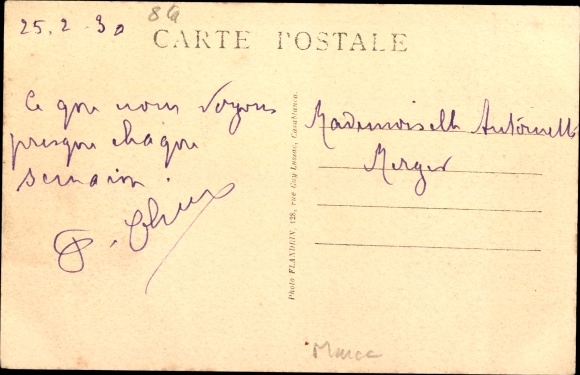 25.2.30
CARTE POSTALE
Ce que nous voyons
presque chaque
semaine.
Mademoiselle Antoinette
Photo FLANDRIN, 128, rue Guy-Lussac, Casablanca.
Maroc